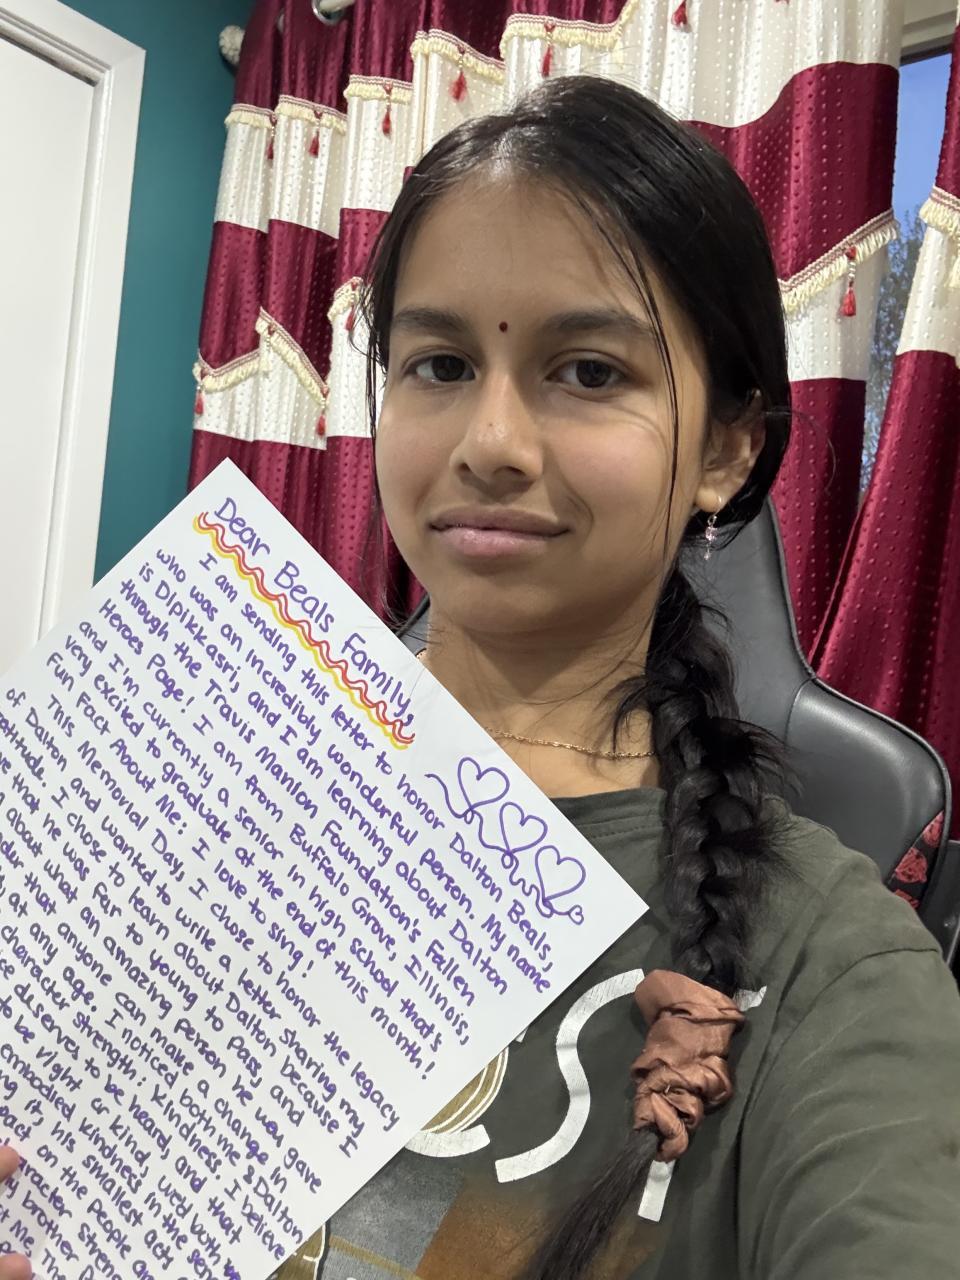 Dear Beals Family,
I am sending this letter to honor Dalton Beals,
who was an incredibly wonderful person. My name
is Dipikkasri, and I am learning about Dalton
through the Travis Manion Foundation's Fallen
Heroes Page! I am from Buffalo Grove, Illinois,
and I'm currently a senior in high school that's
very excited to graduate at the end of this month!
Fun Fact About Me: I love to sing!
This Memorial Day, I chose to honor the legacy
of Dalton and wanted to write a letter sharing my
I chose to learn about Dalton because I
that he was far to young to pass, and
about what an amazing person he was gave
that anyone can make a change in
at any age. I noticed both me & Dalton
character strength: Kindness. I believe
deserves to be heard, and that
to be right or kind, we'd both
embodied kindness in the
it, his smallest acts of
on the people
brother
OST